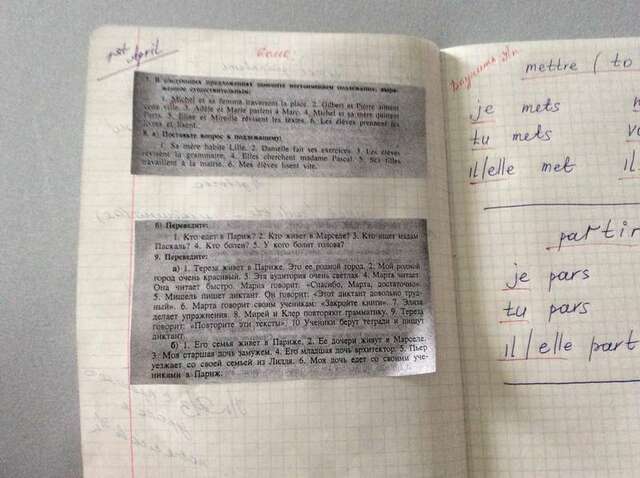 1st April
7. В следующих предложениях замените местоимением подлежащие, выра-
женное существительным:
1. Michel et sa femme traversent la place. 2. Gilbert et Pierre aiment
cette ville. 3. Adèle et Marie parlent à Marc. 4. Michel et sa mère quittent
Paris. 5. Élise et Mireille révisent les textes. 6. Les élèves prennent les
livres et lisent.
8. а) Поставьте вопрос к подлежащему:
1. Sa mère habite Lille. 2. Danielle fait ses exercices. 3. Les élèves
révisent la grammaire. 4. Elles cherchent madame Pascal. 5. Ses filles
travaillent à la mairie. 6. Mes élèves lisent vite.
б) Переведите:
1. Кто едет в Париж? 2. Кто живет в Марселе? 3. Кто ищет мадам
Паскаль? 4. Кто болен? 5. У кого болит голова?
9. Переведите:
а) 1. Тереза живет в Париже. Это ее родной город. 2. Мой родной
город очень красивый. 3. Эта аудитория очень светлая. 4. Марта читает.
Она читает быстро. Мария говорит: «Спасибо, Марта, достаточно».
5. Мишель пишет диктант. Он говорит: «Этот диктант довольно труд-
ный». 6. Марта говорит своим ученикам: «Закройте книги». 7. Элиза
делает упражнения. 8. Мирей и Клер повторяют грамматику. 9. Тереза
говорит: «Повторите эти тексты». 10. Ученики берут тетради и пишут
диктант.
б) 1. Его семья живет в Париже. 2. Ее дочери живут в Марселе.
3. Моя старшая дочь замужем. 4. Его младшая дочь архитектор. 5. Пьер
уезжает со своей семьей из Лилля. 6. Моя дочь едет со своими уче-
никами в Париж.
mettre ( to
je mets
tu mets
il/elle met il
partir
je pars
tu pars
il / elle part